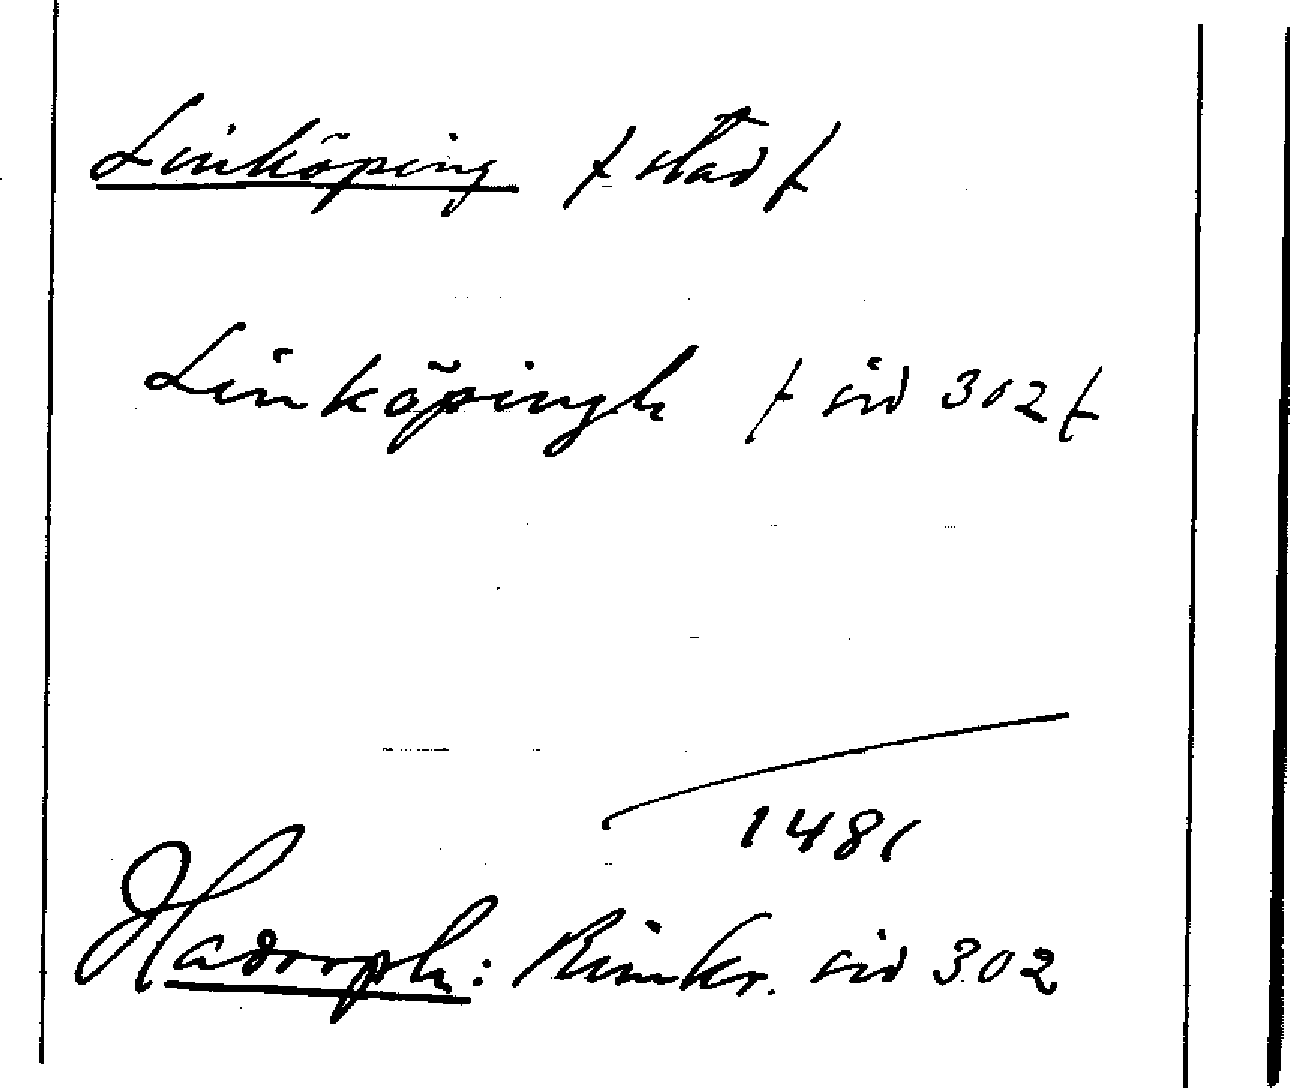 Linköping /stad/
Linköpingh /sid 302/
1481
Hadorph: Rimkr. sid 302